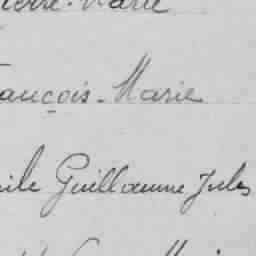 ierre-Marie
ançois-Marie
ile Guillaume Jules